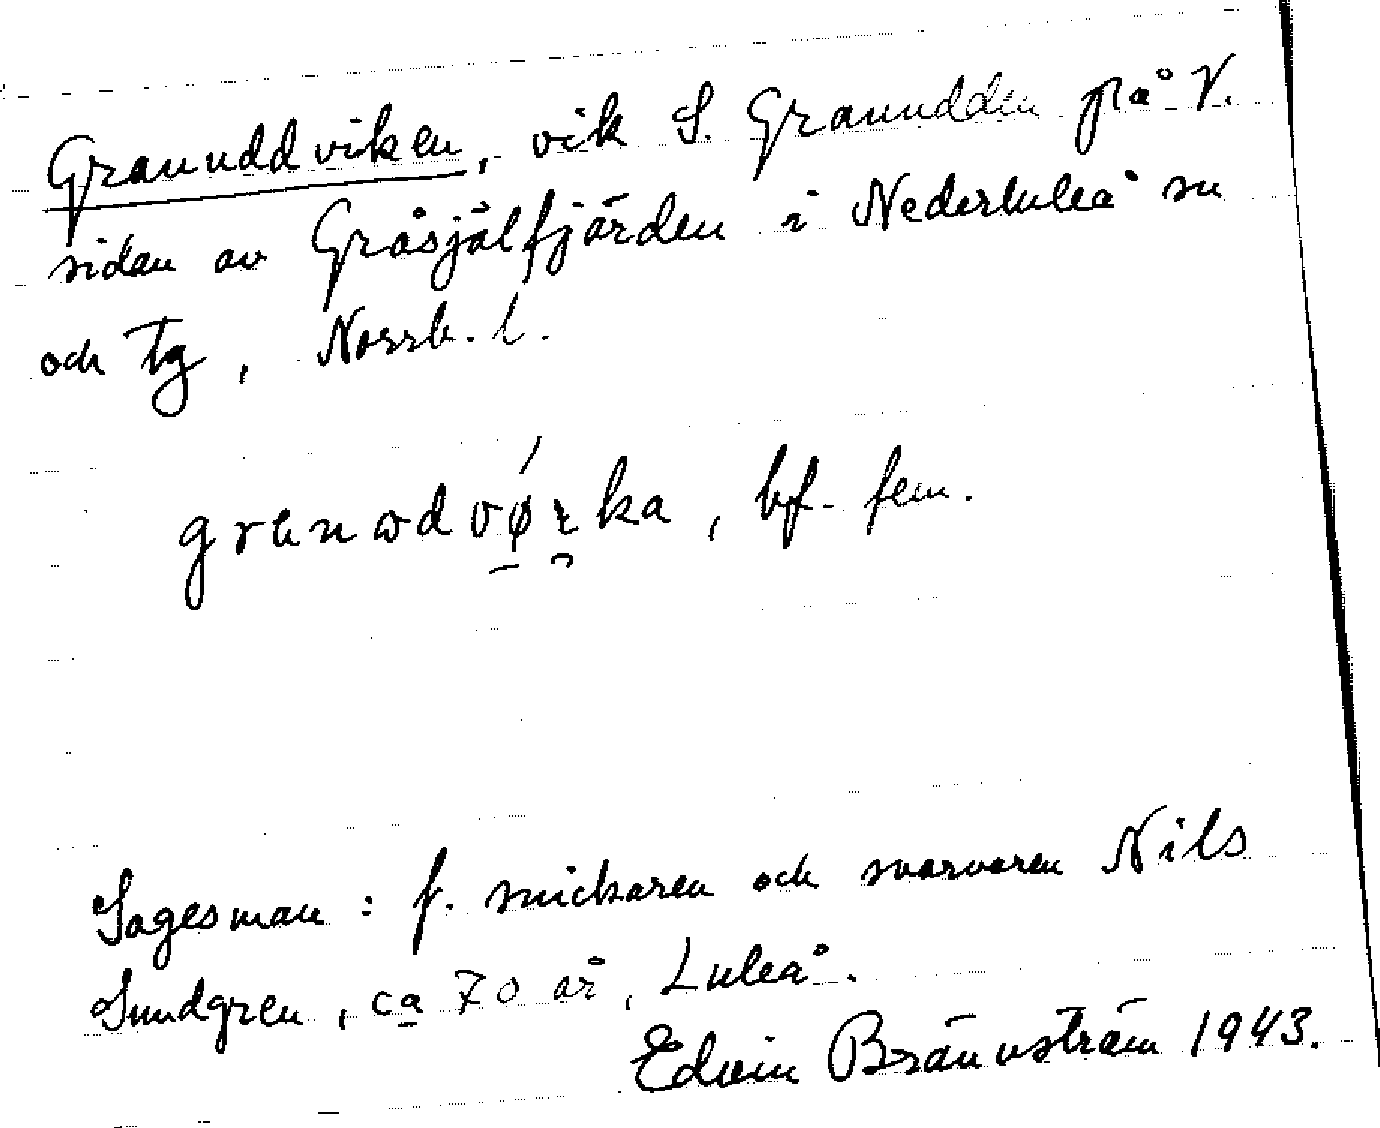 Granuddviken, vik S. Granudden på V.
sidan av Gråsjälfjärden i Nederluleå sn
och tg, Norrb. l.
bf. fem.
Sagesman: f. snickaren och svarvaren Nils
Sundgren, ca 70 år, Luleå.
Edvin Brännström 1943.